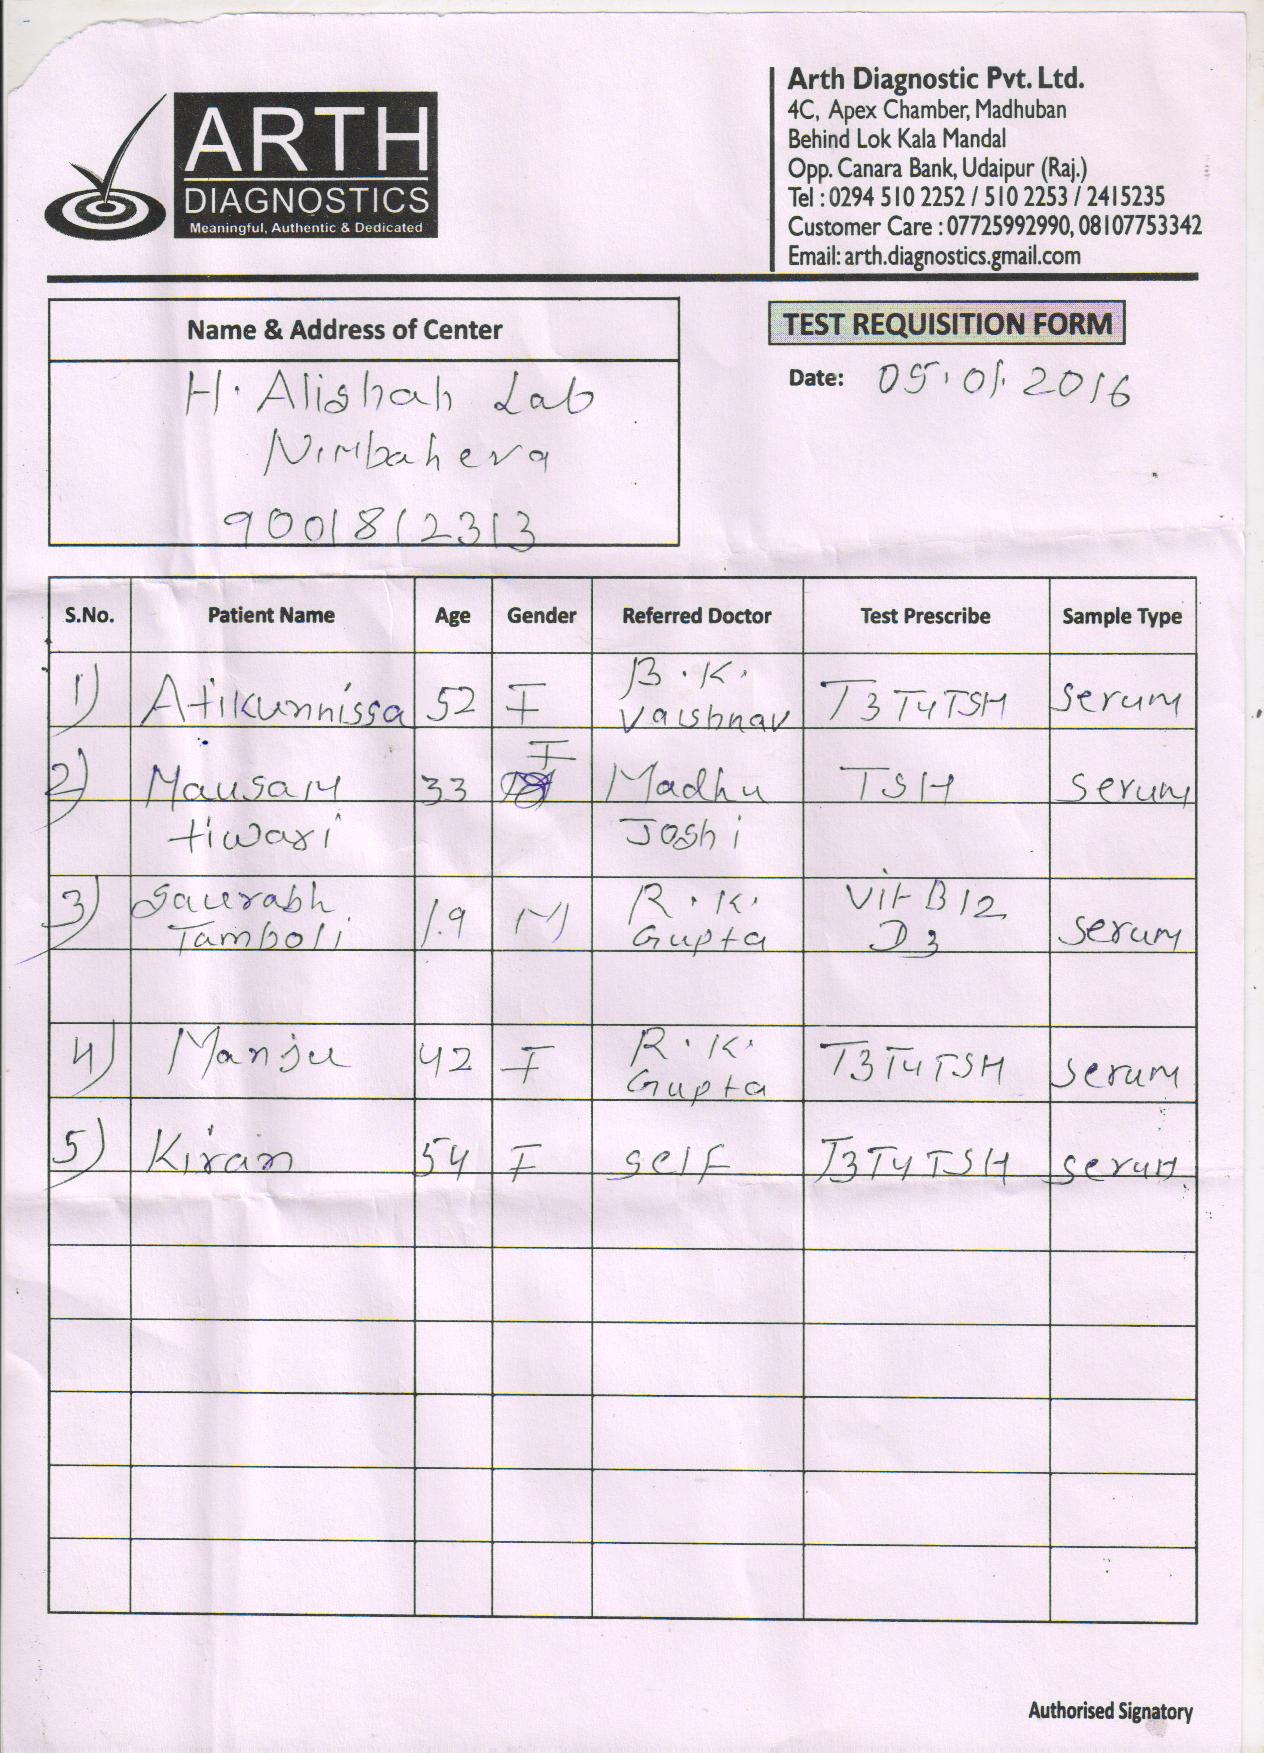 ARTH
DIAGNOSTICS
Meaningful, Authentic & Dedicated
Arth Diagnostic Pvt. Ltd.
4C, Apex Chamber, Madhuban
Behind Lok Kala Mandal
Opp. Canara Bank, Udaipur (Raj.)
Tel : 0294 510 2252 / 510 2253 / 2415235
Customer Care : 07725992990, 08107753342
Email: arth.diagnostics.gmail.com
Name & Address of Center
H. Alishah Lab
Nimbahera
9001812313
TEST REQUISITION FORM
Date: 05.01.2016
S.No. Patient Name Age Gender Referred Doctor Test Prescribe Sample Type
1) Atikunnissa 52 F B.K. Vaishnav T3T4TSH serum
2) Mausam tiwari 33 F Madhu Joshi TSH serum
3) Saurabh Tamboli 19 M R.K. Gupta Vit B12 D3 serum
4) Manju 42 F R.K. Gupta T3T4TSH serum
5) Kiran 54 F self T3T4TSH serum
Authorised Signatory